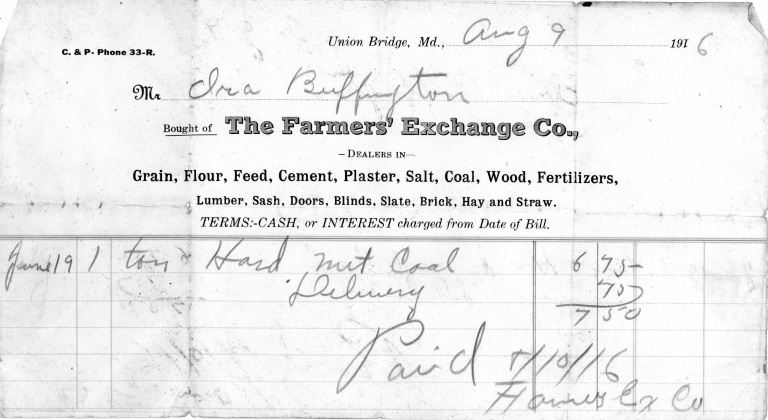 Union Bridge, Md., Aug 9 1916
C. & P- Phone 33-R.
Mr Ira Buffington
Bought of The Farmers' Exchange Co.,
—DEALERS IN—
Grain, Flour, Feed, Cement, Plaster, Salt, Coal, Wood, Fertilizers,
Lumber, Sash, Doors, Blinds, Slate, Brick, Hay and Straw.
TERMS:-CASH, or INTEREST charged from Date of Bill.
June 19 1 ton Hard nut Coal 6 75
Delivery 75
7 50
Paid 8/10/16
Farmers Ex Co